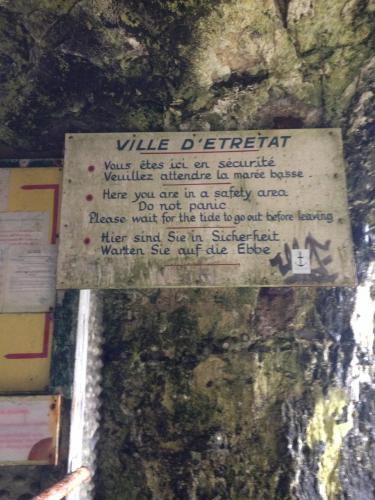 VILLE D'ETRETAT
Vous êtes ici en sécurité
Veuillez attendre la marée basse.
Here you are in a safety area
Do not panic
Please wait for the tide to go out before leaving
Hier sind Sie in Sicherheit
Warten Sie auf die Ebbe